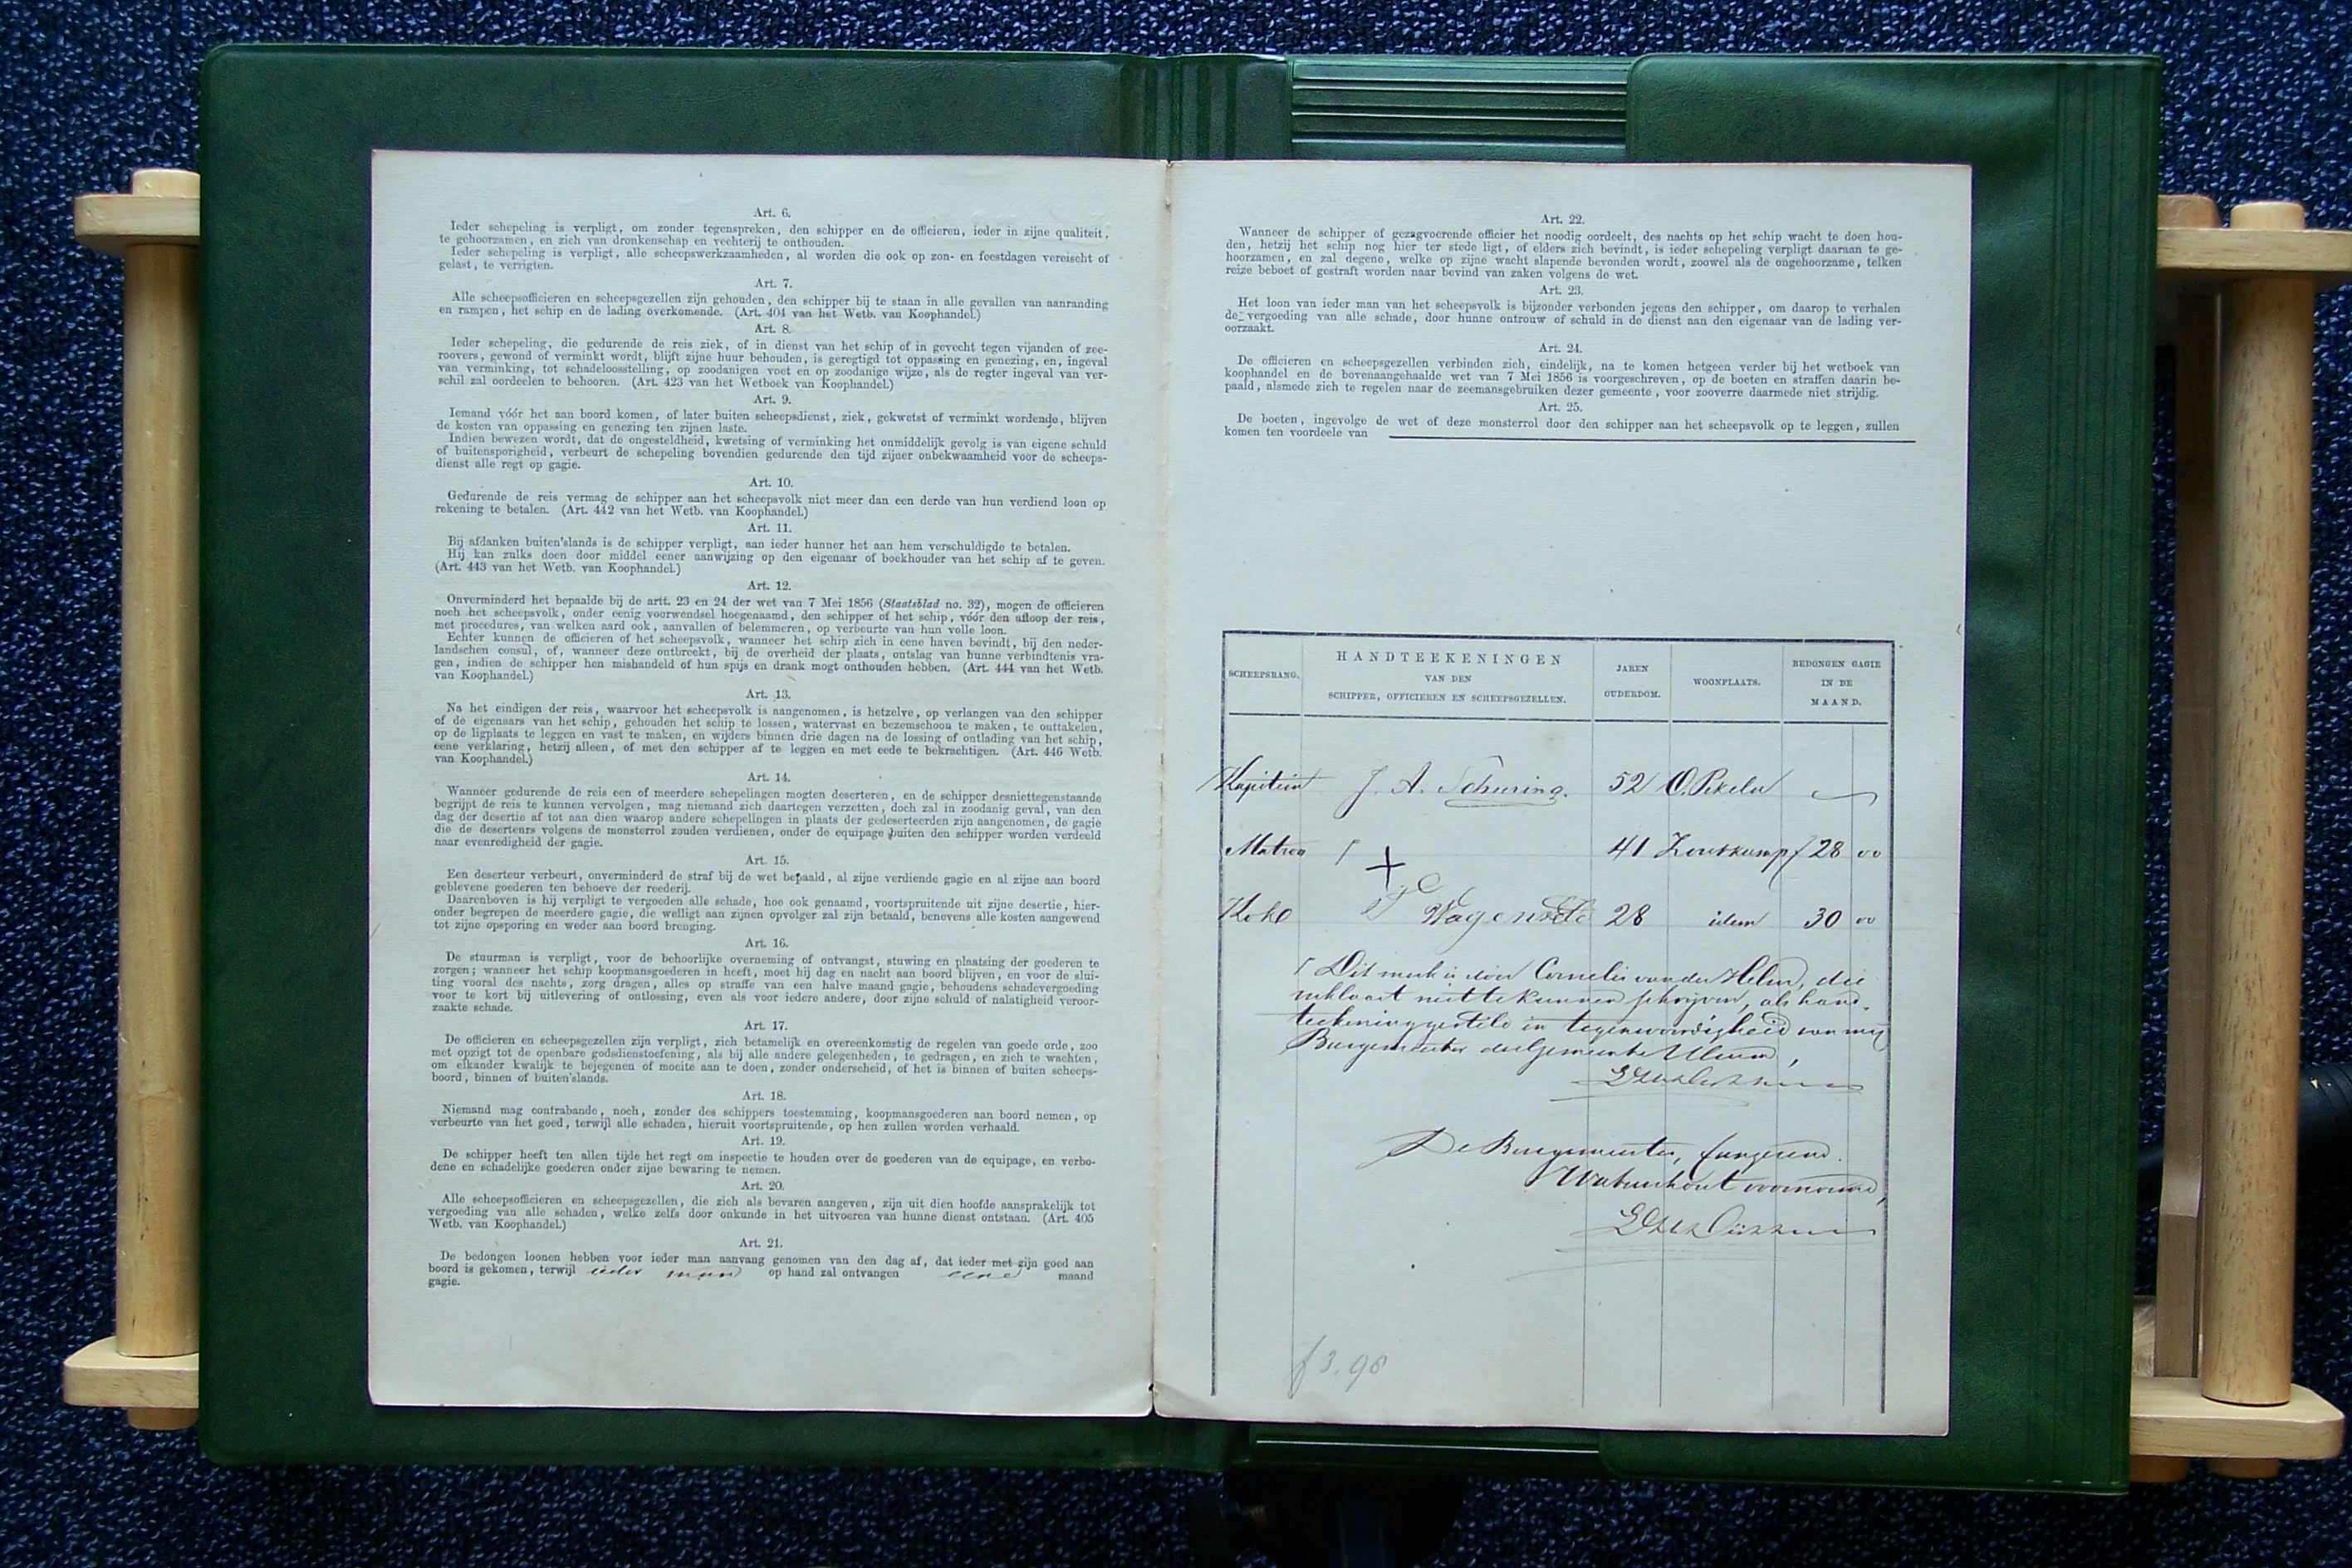 Art. 6.
Ieder schepeling is verpligt, om zonder tegenspreken, den schipper en de officieren, ieder in zijne qualiteit,
te gehoorzamen, en zich van dronkenschap en vechterij te onthouden.
Ieder schepeling is verpligt, alle scheepswerkzaamheden, al worden die ook op zon- en feestdagen vereischt of
gelast, te verrigten.
Art. 7.
Alle scheepsofficieren en scheepsgezellen zijn gehouden, den schipper bij te staan in alle gevallen van aanranding
en rampen, het schip en de lading overkomende. (Art. 404 van het Wetb. van Koophandel.)
Art. 8.
Ieder schepeling, die gedurende de reis ziek, of in dienst van het schip of in gevecht tegen vijanden of zee-
roovers, gewond of verminkt wordt, blijft zijne huur behouden, is geregtigd tot oppassing en genezing, en, ingeval
van verminking, tot schadeloosstelling, op zoodanigen voet en op zoodanige wijze, als de regter ingeval van ver-
schil zal oordeelen te behooren. (Art. 423 van het Wetboek van Koophandel.)
Art. 9.
Iemand vóór het aan boord komen, of later buiten scheepsdienst, ziek, gekwetst of verminkt wordende, blijven
de kosten van oppassing en genezing ten zijnen laste.
Indien bewezen wordt, dat de ongesteldheid, kwetsing of verminking het onmiddelijk gevolg is van eigene schuld
of buitensporigheid, verbeurt de schepeling bovendien gedurende den tijd zijner onbekwaamheid voor de scheeps-
dienst alle regt op gagie.
Art. 10.
Gedurende de reis vermag de schipper aan het scheepsvolk niet meer dan een derde van hun verdiend loon op
rekening te betalen. (Art. 442 van het Wetb. van Koophandel.)
Art. 11.
Bij afdanken buiten'slands is de schipper verpligt, aan ieder hunner het aan hem verschuldigde te betalen.
Hij kan zulks doen door middel eener aanwijzing op den eigenaar of boekhouder van het schip af te geven.
(Art. 443 van het Wetb. van Koophandel.)
Art. 12.
Onverminderd het bepaalde bij de artt. 23 en 24 der wet van 7 Mei 1856 (Staatsblad no. 32), mogen de officieren
noch het scheepsvolk, onder eenig voorwendsel hoegenaamd, den schipper of het schip, vóór den afloop der reis,
met procedures, van welken aard ook, aanvallen of belemmeren, op verbeurte van hun volle loon.
Echter kunnen de officieren of het scheepsvolk, wanneer het schip zich in eene haven bevindt, bij den neder-
landschen consul, of, wanneer deze ontbreekt, bij de overheid der plaats, ontslag van hunne verbindtenis vra-
gen, indien de schipper hen mishandeld of hun spijs en drank mogt onthouden hebben. (Art. 444 van het Wetb.
van Koophandel.)
Art. 13.
Na het eindigen der reis, waarvoor het scheepsvolk is aangenomen, is hetzelve, op verlangen van den schipper
of de eigenaars van het schip, gehouden het schip te lossen, watervast en bezemschoon te maken, te onttakelen,
op de ligplaats te leggen en vast te maken, en wijders binnen drie dagen na de lossing of ontlading van het schip,
eene verklaring, hetzij alleen, of met den schipper af te leggen en met eede te bekrachtigen. (Art. 446 Wetb.
van Koophandel.)
Art. 14.
Wanneer gedurende de reis een of meerdere schepelingen mogten deserteren, en de schipper desniettegenstaande
begrijpt de reis te kunnen vervolgen, mag niemand zich daartegen verzetten, doch zal in zoodanig geval, van den
dag der desertie af tot aan dien waarop andere schepelingen in plaats der gedeserteerden zijn aangenomen, de gagie
die de deserteurs volgens de monsterrol zouden verdienen, onder de equipage buiten den schipper worden verdeeld
naar evenredigheid der gagie.
Art. 15.
Een deserteur verbeurt, onverminderd de straf bij de wet bepaald, al zijne verdiende gagie en al zijne aan boord
geblevene goederen ten behoeve der reederij.
Daarenboven is hij verpligt te vergoeden alle schade, hoe ook genaamd, voortspruitende uit zijne desertie, hier-
onder begrepen de meerdere gagie, die welligt aan zijnen opvolger zal zijn betaald, benevens alle kosten aangewend
tot zijne opsporing en weder aan boord brenging.
Art. 16.
De stuurman is verpligt, voor de behoorlijke overneming of ontvangst, stuwing en plaatsing der goederen te
zorgen; wanneer het schip koopmansgoederen in heeft, moet hij dag en nacht aan boord blijven, en voor de slui-
ting vooral des nachts, zorg dragen, alles op straffe van een halve maand gagie, behoudens schadevergoeding
voor te kort bij uitlevering of ontlossing, even als voor iedere andere, door zijne schuld of nalatigheid veroor-
zaakte schade.
Art. 17.
De officieren en scheepsgezellen zijn verpligt, zich betamelijk en overeenkomstig de regelen van goede orde, zoo
met opzigt tot de openbare godsdienstoefening, als bij alle andere gelegenheden, te gedragen, en zich te wachten,
om elkander kwalijk te bejegenen of moeite aan te doen, zonder onderscheid, of het is binnen of buiten scheeps-
boord, binnen of buiten'slands.
Art. 18.
Niemand mag contrabande, noch, zonder des schippers toestemming, koopmansgoederen aan boord nemen, op
verbeurte van het goed, terwijl alle schaden, hieruit voortspruitende, op hen zullen worden verhaald.
Art. 19.
De schipper heeft ten allen tijde het regt om inspectie te houden over de goederen van de equipage, en verbo-
dene en schadelijke goederen onder zijne bewaring te nemen.
Art. 20.
Alle scheepsofficieren en scheepsgezellen, die zich als bevaren aangeven, zijn uit dien hoofde aansprakelijk tot
vergoeding van alle schaden, welke zelfs door onkunde in het uitvoeren van hunne dienst ontstaan. (Art. 405
Wetb. van Koophandel.)
Art. 21.
De bedongen loonen hebben voor ieder man aanvang genomen van den dag af, dat ieder met zijn goed aan
boord is gekomen, terwijl ieder man op hand zal ontvangen eene maand
gagie.
Art. 22.
Wanneer de schipper of gezagvoerende officier het noodig oordeelt, des nachts op het schip wacht te doen hou-
den, hetzij het schip nog hier ter stede ligt, of elders zich bevindt, is ieder schepeling verpligt daaraan te ge-
hoorzamen, en zal degene, welke op zijne wacht slapende bevonden wordt, zoowel als de ongehoorzame, telken
reize beboet of gestraft worden naar bevind van zaken volgens de wet.
Art. 23.
Het loon van ieder man van het scheepsvolk is bijzonder verbonden jegens den schipper, om daarop te verhalen
de vergoeding van alle schade, door hunne ontrouw of schuld in de dienst aan den eigenaar van de lading ver-
oorzaakt.
Art. 24.
De officieren en scheepsgezellen verbinden zich, eindelijk, na te komen hetgeen verder bij het wetboek van
koophandel en de bovenaangehaalde wet van 7 Mei 1856 is voorgeschreven, op de boeten en straffen daarin be-
paald, alsmede zich te regelen naar de zeemansgebruiken dezer gemeente, voor zooverre daarmede niet strijdig.
Art. 25.
De boeten, ingevolge de wet of deze monsterrol door den schipper aan het scheepsvolk op te leggen, zullen
komen ten voordeele van
SCHEEPSRANG. HANDTEEKENINGEN VAN DEN SCHIPPER, OFFICIEREN EN SCHEEPSGEZELLEN. JAREN OUDERDOM. WOONPLAATS. BEDONGEN GAGIE IN DE MAAND.
Kapitein J. A. Schuring. 52 O. Pekela
Matroo + 41 Zoutkamp f 28 00
Kok 28 idem 30 00
Dit merk is door Cornelis van der Helm, die
verklaart niet te kunnen schrijven, als hand-
teekening gesteld in tegenwoordigheid van mij
Burgemeester der Gemeente Ulrum,
De Burgemeester, fungerend
Waterschout voornoemd,
f 3.90